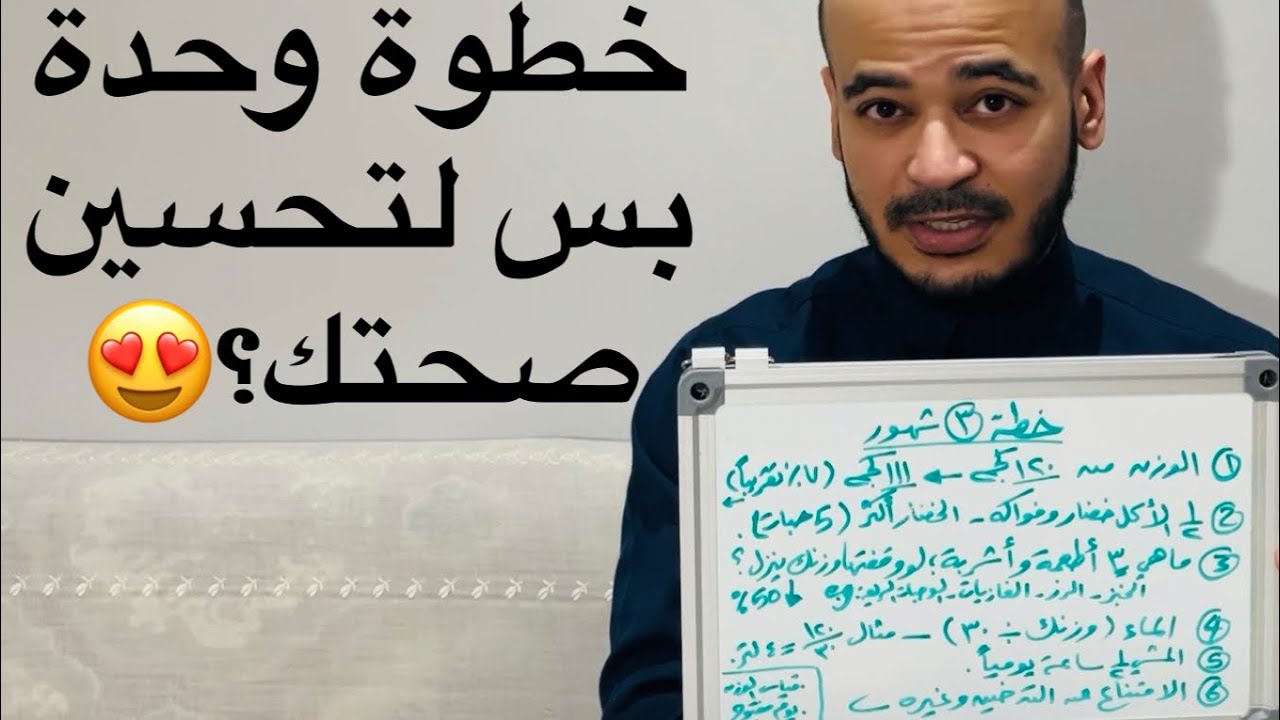 خطوة وحدة
بس لتحسين
صحتك؟😍
خطة ③ شهور
① الوزن من ١٢٠كجم ← ١١١كجم (٧٪ تقريباً)
② ½ الأكل خضار وفواكه - الخضار أكثر (5 حبات).
③ ماهي ٣ أطعمة وأشربة؛ لو وقفتها وزنك ينزل؟
الخبز - الرز - الغازيات - الوجبات السريعة ↓ 50%
④ الماء (وزنك ÷ ٣٠) - مثال ١٢٠/٣٠ = ٤ لتر.
⑤ المشي ½ ساعة يومياً.
⑥ الامتناع عن التدخين وغيره
. قياس الوزن
. يوم مفتوح